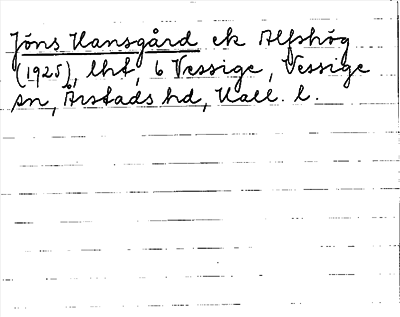 Jöns Hansgård ek Alfshög
(1925), lht, 6 Vessige, Vessige
sn, Årstads hd, Hall. l.